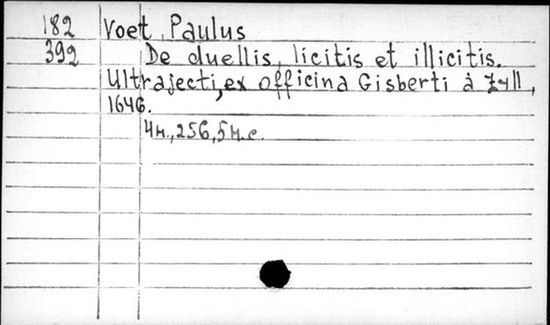 182 Voet, Paulus
392 De duellis, licitis et illicitis.
Ultrajecti, ex officina Gisberti à Zyll,
1646.
4н., 256, 5н.с.